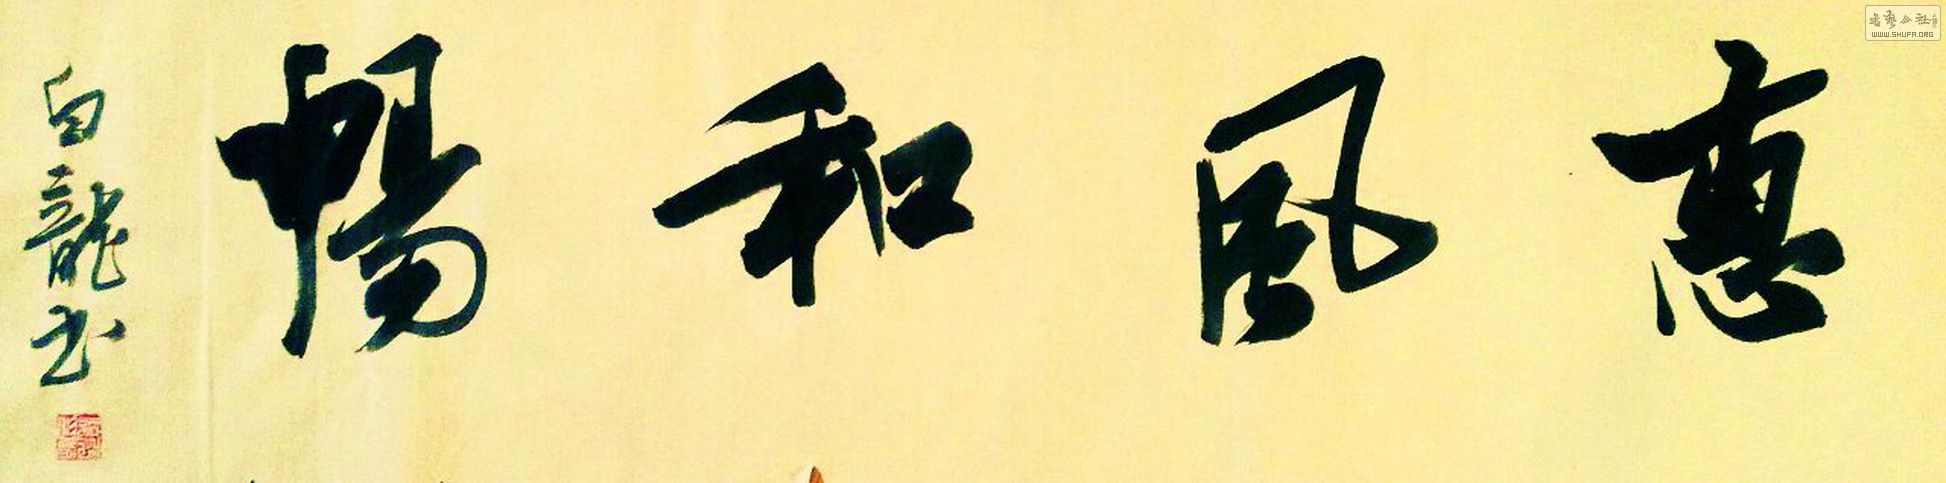 惠風和暢
白龍书
书艺公社
WWW.SHUFA.ORG